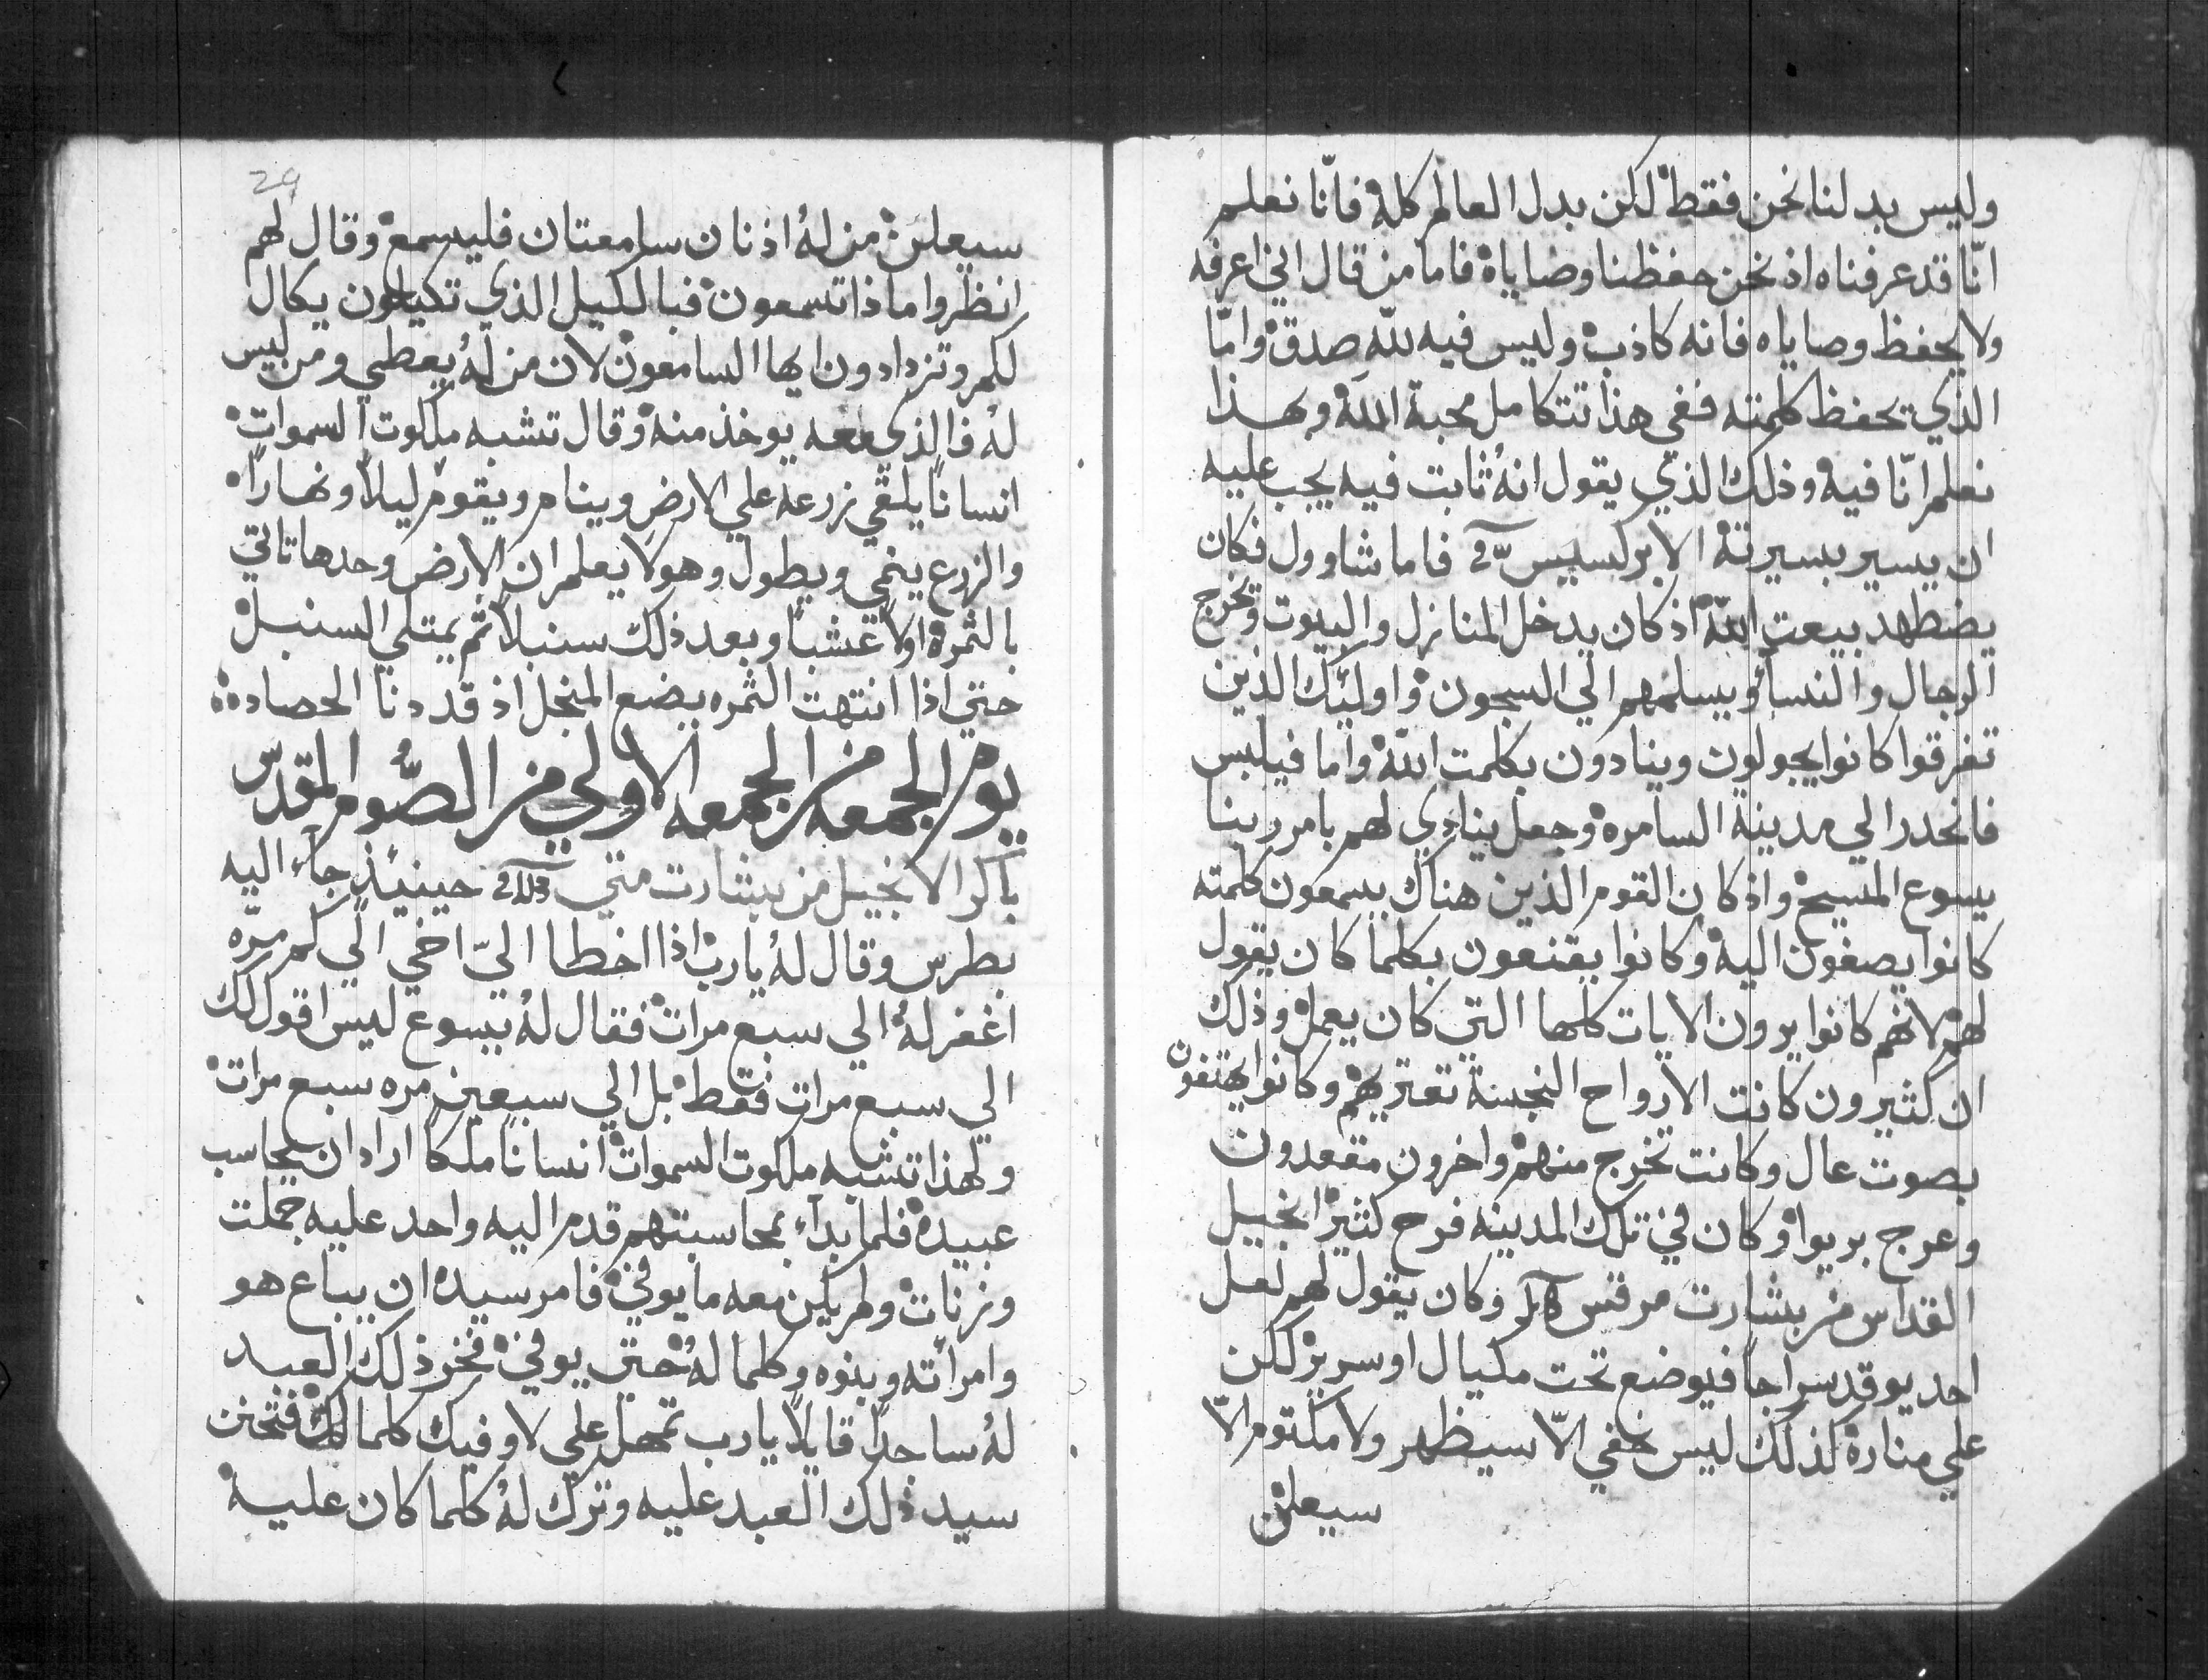 وليس بدلنا نحن فقط لكن بدل العالم كله فانّا نعلم
انّا قد عرفناه اذ نحن حفظنا وصاياه فاما من قال اني اعرفه
ولا يحفظ وصاياه فانه كاذب وليس فيه لله صدق وامّا
الذي يحفظ كلمته ففي هذا تتكامل محبة الله وبهذا
نعلم انّا فيه وذلك الذي يقول انهُ ثابت فيه يجب عليه
ان يسير بسيرته الابركسيس فاما شاوول فكان
يضطهد بيعت الله اذ كان يدخل المنازل والبيوت وتخرج
الرجال والنسا ويسلمهم الي السجون واوليك الذين
تفرقوا كانوا يجولون وينادون بكلمت الله واما فيلبس
فانحدر الي مدينة السامره وجعل ينادي لهم بامر ربنا
يسوع المسيح واذ كان القوم الذين هناك يسمعون كلمته
كانوا يصغون اليه وكانوا يقنعون بكلما كان يقول
لهم لانهم كانوا يرون الايات كلها التي كان يعمل وذلك
ان كثيرون كانت الارواح النجسة تعتريهم وكانوا يهتفون
بصوت عال وكانت تخرج منهم واخرون مقعدون
وعرج بريوا وكان في تلك المدينه فرح كثير انجيل
القداس من بشارت مرقس وكان يقول لهم لعل
احد يوقد سراجاً فيوضع تحت مكيال او سرير لكن
علي مناره كذلك ليس خفي الّا سيظهر ولا مكتوم الّا
سيعلن
29
سيعلن من لهُ اذنان سامعتان فليسمع وقال لهم
انظروا ماذا تسمعون فبالكيل الذي تكيلون يكال
لكم وتزدادون ايها السامعون لان من لهُ يعطي ومن ليس
لهُ فالذي معه يوخذ منه وقال تشبه ملكوت السموات
انساناً يلقي زرعه علي الارض وينام ويقوم ليلاً ونهاراً
والزرع ينمي ويطول وهو لا يعلم ان الارض وحدها تاتي
بالثمره اولاً عشباً وبعد ذلك سنبلاً ثم يمتلي السنبل
حتي اذا انتهت الثمره يضع المنجل اذ قد دنا الحصاده
يوم الجمعه من الجمعه الاولي من الصَّوم المقدّس
باكر الانجيل من بشارت متي حينيذٍ جاء اليه
بطرس وقال لهُ يارب اذا اخطا اليّ اخي الي كم مرّه
اغفر لهُ الي سبع مرات فقال لهُ يسوع ليس اقول لك
الي سبع مرات فقط بل الي سبعين مره سبع مرات
ولهذا تشبه ملكوت السموات انساناً ملكاً اراد ان يحاسب
عبيده فلما بدأ بمحاسبتهم قدم اليه واحد عليه جملت
وزنات ولم يكن معه ما يوفي فامر سيده ان يباع هو
وامرأته وبنوه وكلما لهُ حتي يوفي فخر ذلك العبد
لهُ ساجداً قايلاً يارب تمهل علي لاوفيك كلما لك فتحنن
سيد ذلك العبد عليه وترك لهُ كلما كان عليه